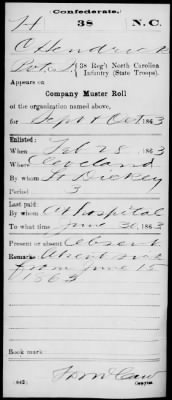 Confederate.
H 38 N.C.
C Hendrick
Pvt 38 Reg't North Carolina
Infantry (State Troops).
Appears on
Company Muster Roll
of the organization named above,
for Sept & Oct, 1863
Enlisted:
When Feb 25, 1863
Where Cleveland
By whom Dickey
Period 3
Last paid:
By whom At Hospital
To what time June 30, 1863
Present or absent Absent
Remarks: Absent sick
from June 15
1863
Book mark:
(642)
Copyist.